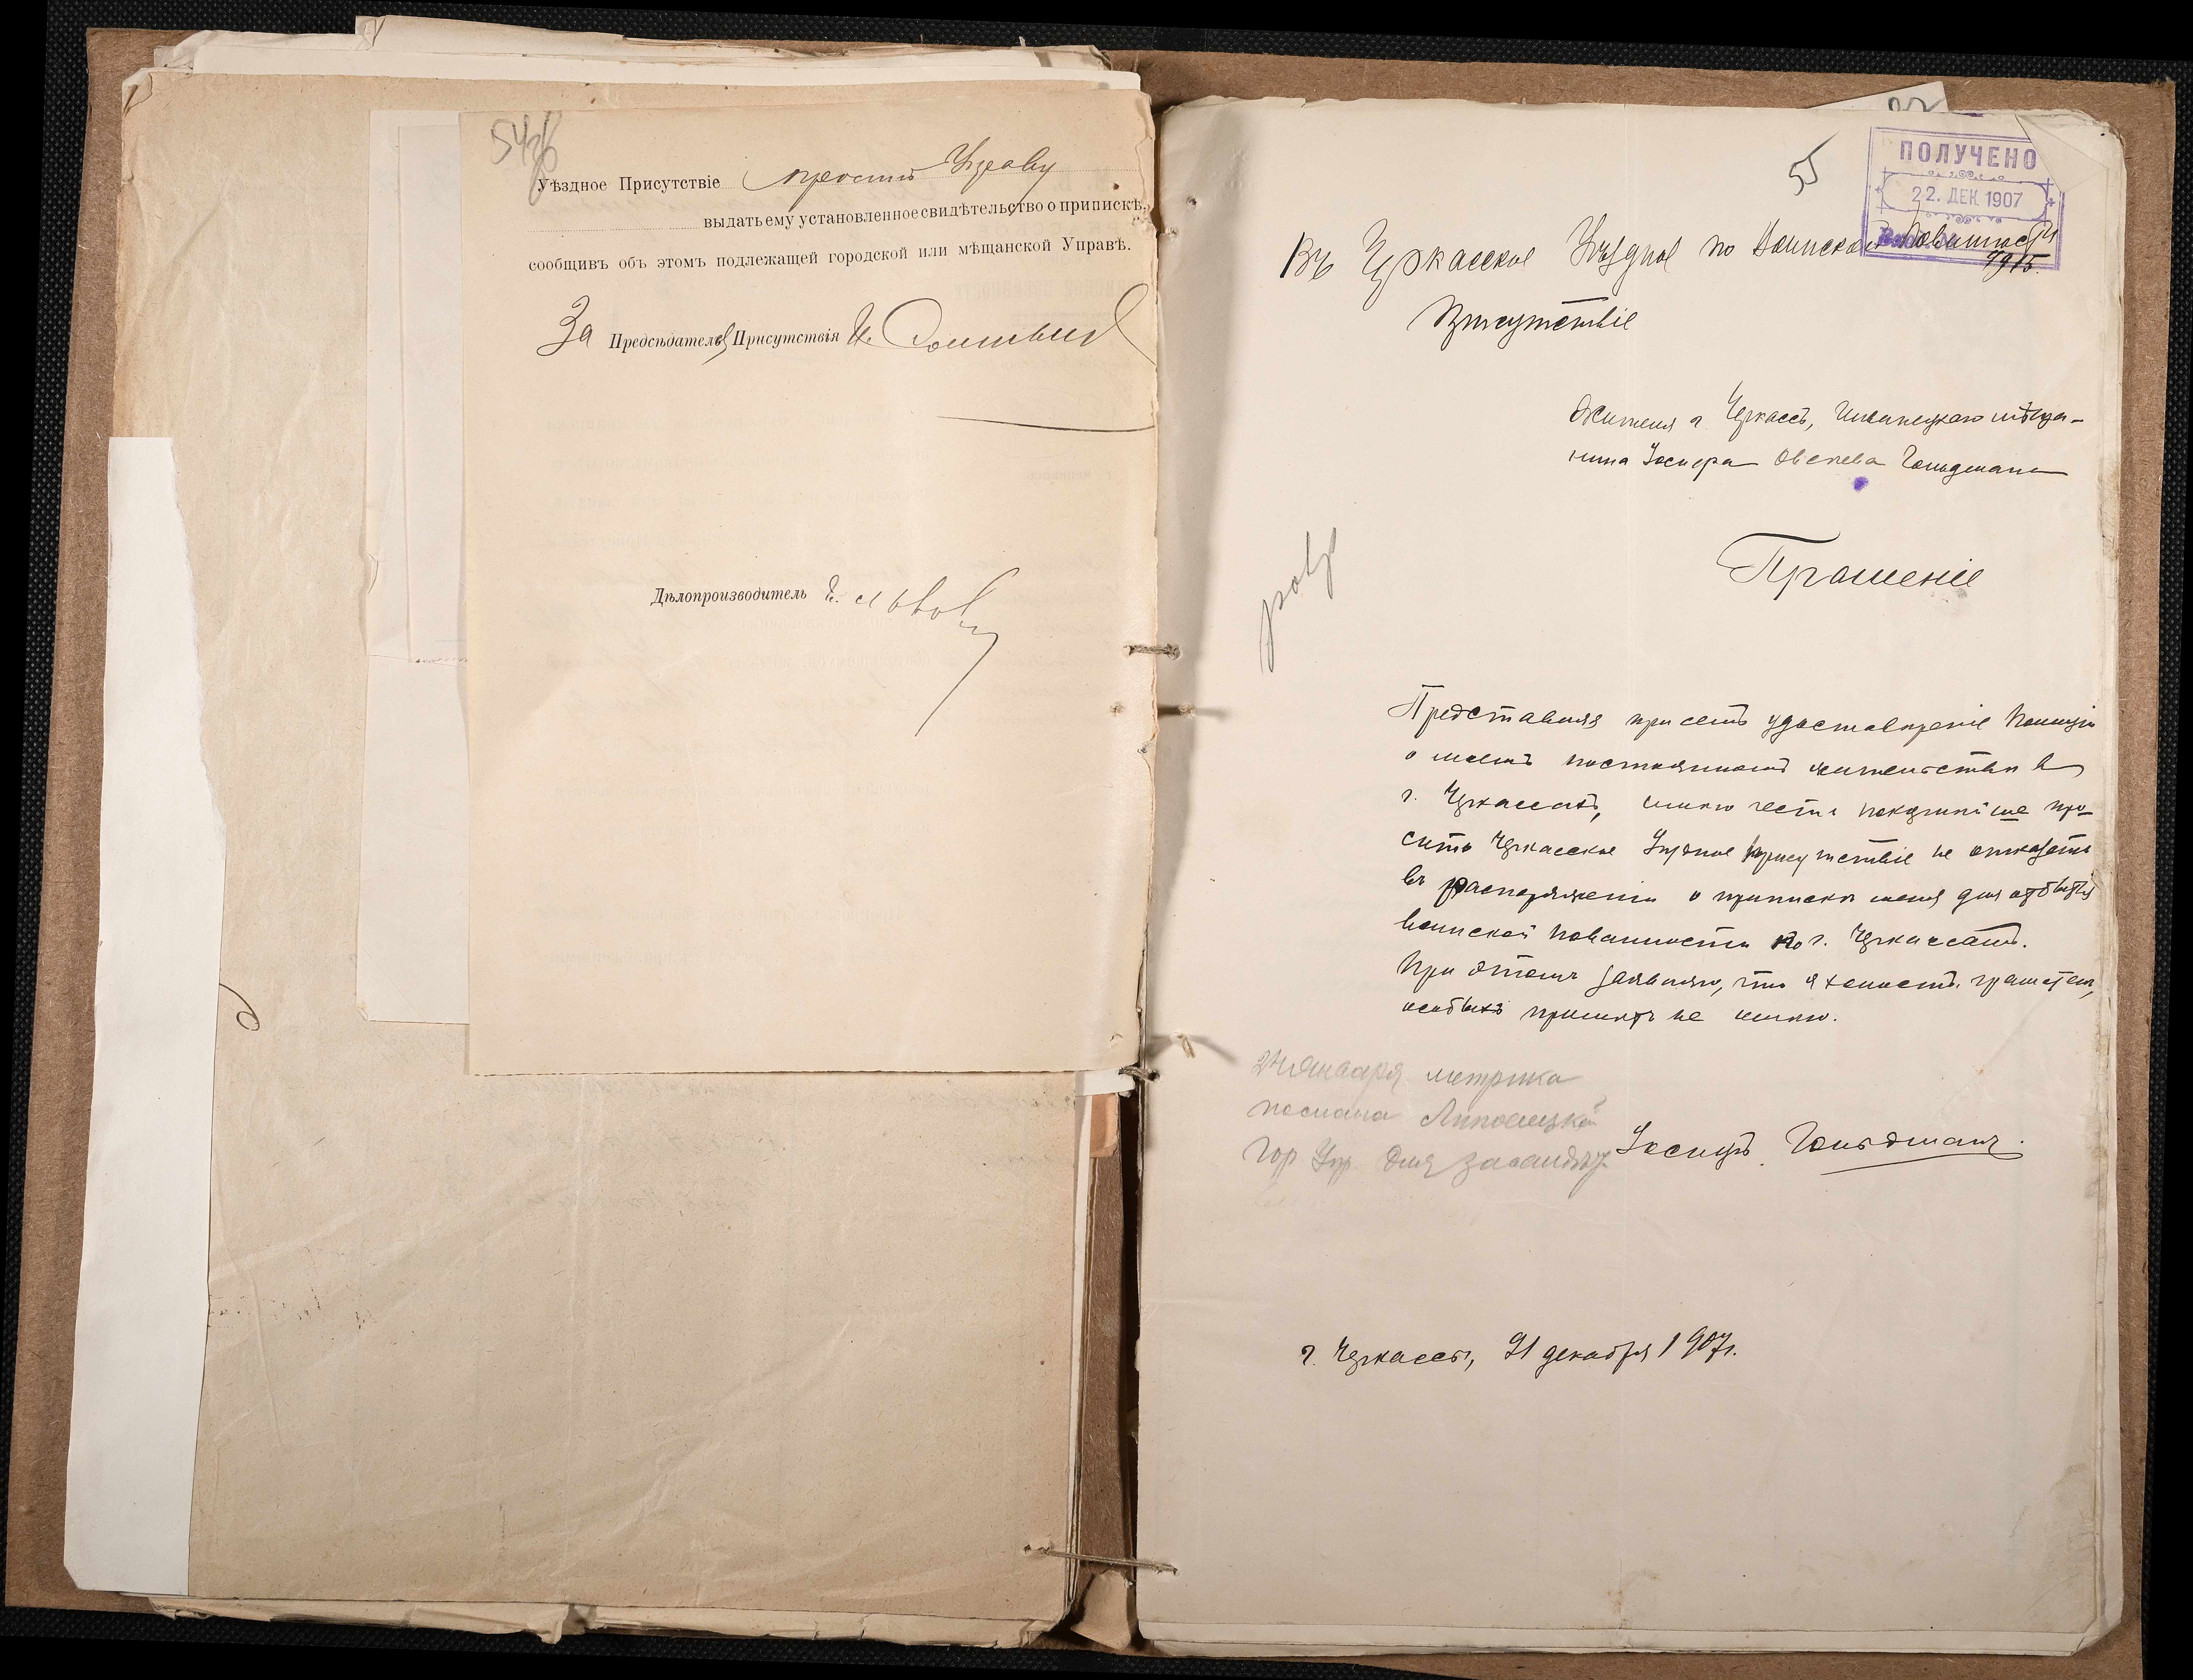 54об
Уѣздное Присутствіе проситъ Управу
выдать ему установленное свидѣтельство о припискѣ,
сообщивъ объ этомъ подлежащей городской или мѣщанской Управѣ.
За Предсѣдателя Присутствія И.
Дѣлопроизводитель
55
ПОЛУЧЕНО
22. ДЕК. 1907
7915
Въ Черкасское Уѣздное по Воинской Повинности
Присутствіе
Жителя г. Черкассъ, мѣща-
нина Іосифа Гольдмана
Прошеніе
Представляя при семъ удостовѣреніе Полиціи
о моемъ постоянномъ жительствѣ въ
г. Черкассахъ, имѣю честь покорнѣйше про-
сить Черкасское Уѣздное Присутствіе не отказать
въ распоряженіи о припискѣ меня для отбытія
воинской повинности по г. Черкассамъ.
При этомъ заявляю, что я холостъ, грамотенъ,
особыхъ примѣтъ не имѣю.
24 Января метрика
послана
Гор Упр для
Іосифъ Гольдманъ.
г. Черкассы, 21 декабря 1907 г.